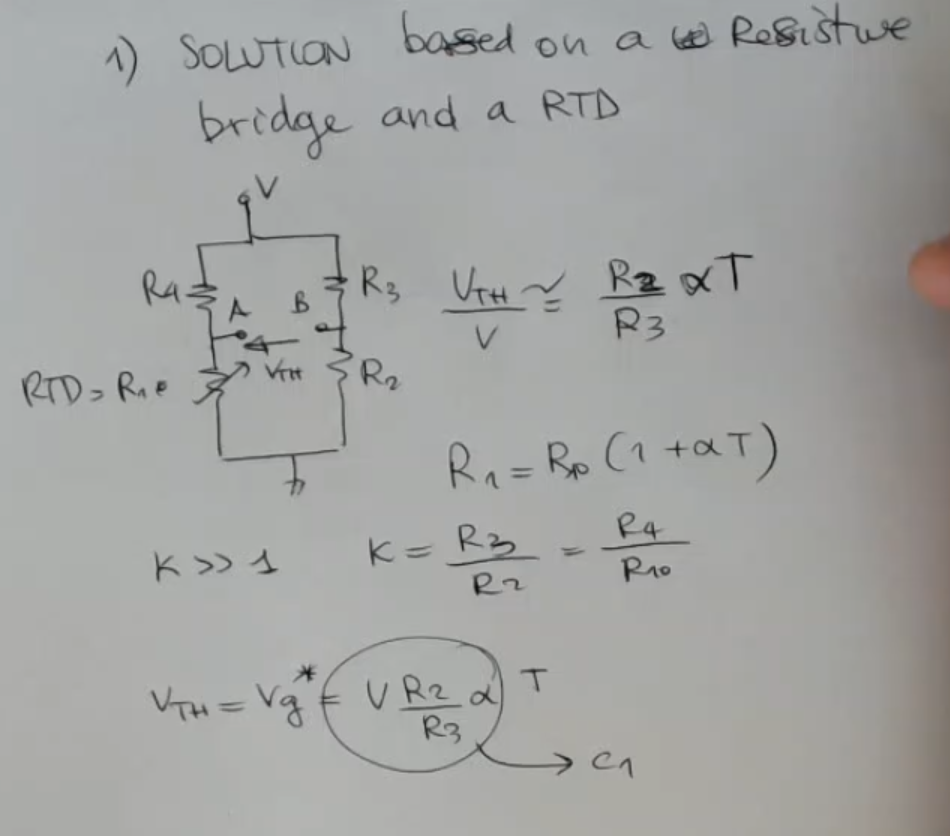 1) SOLUTION based on a Resistive
bridge and a RTD
V
R4
A
B
R3
RTD = R10
VTH
R2
VTH / V ≃ R2 / R3 αT
R1 = R10 (1 + αT)
K >> 1
K = R3 / R2 = R4 / R10
VTH = Vg* = V R2 / R3 α T
→ C1